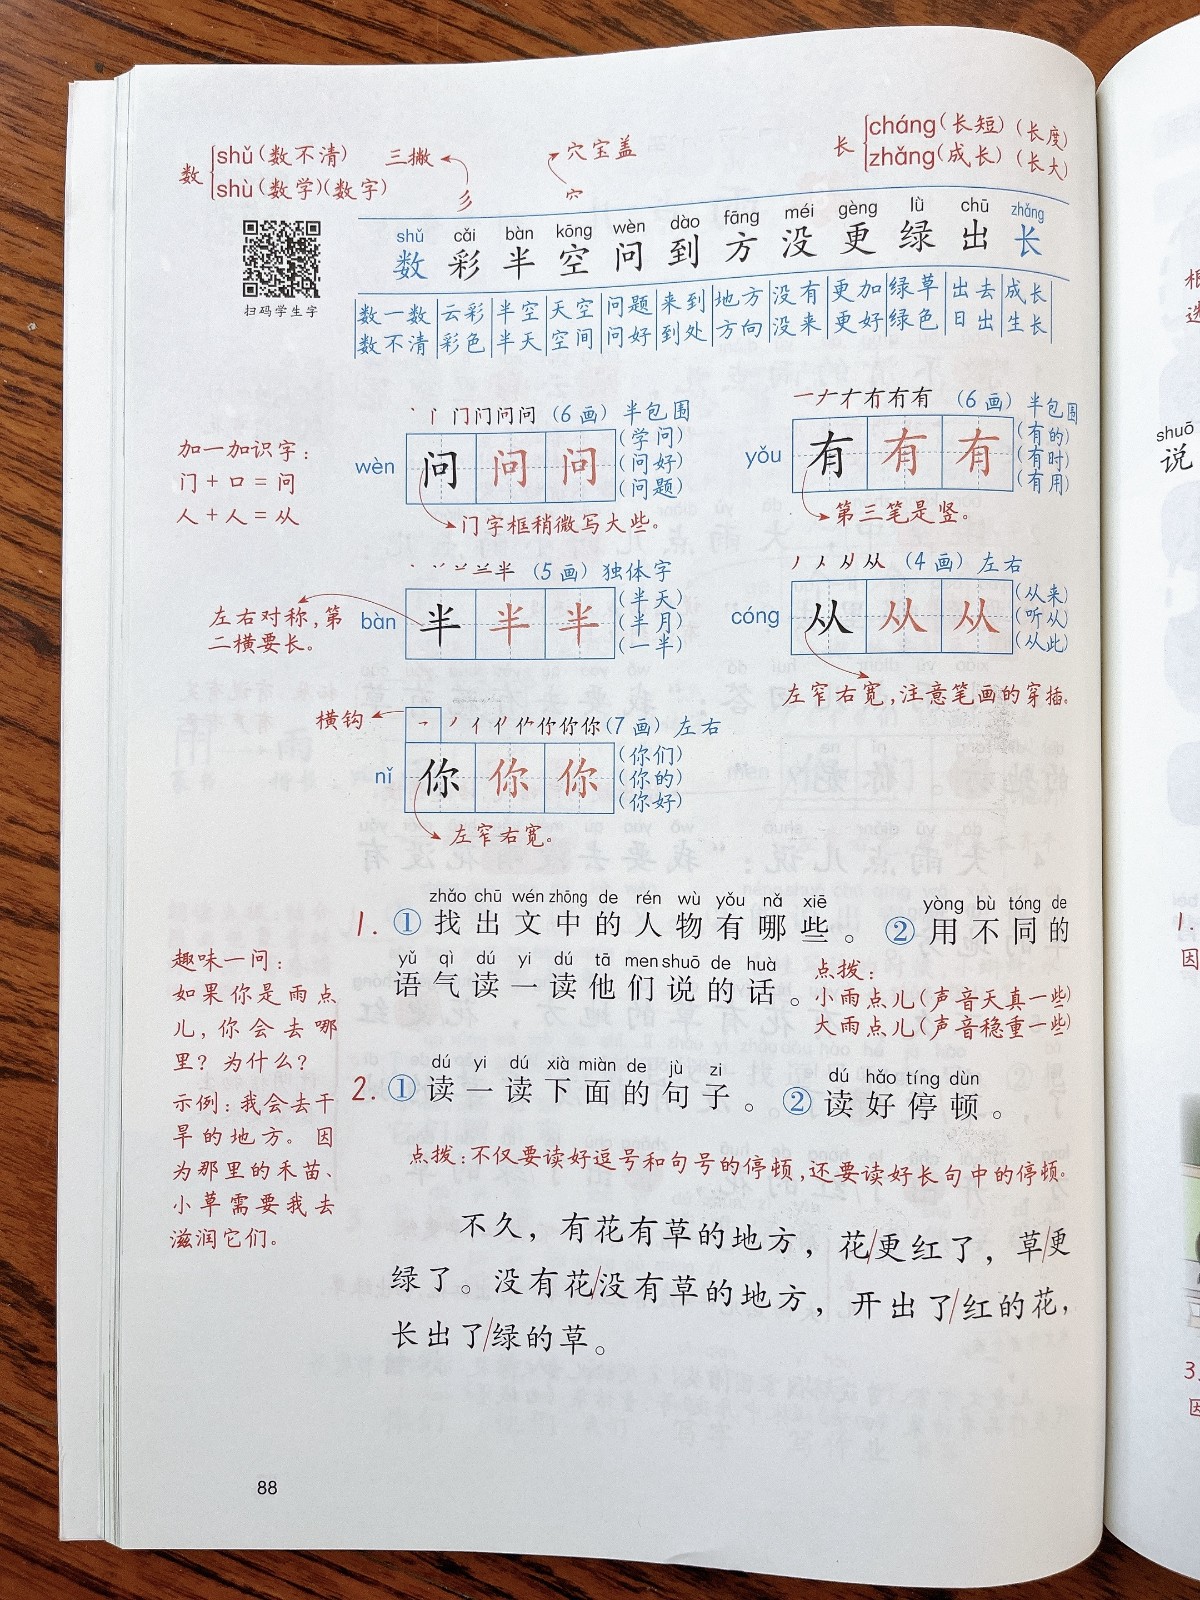 数 shǔ(数不清)
shù(数学)(数字)
三撇
彡
穴宝盖
穴
长 cháng(长短)(长度)
zhǎng(成长)(长大)
扫码学生字
shǔ cǎi bàn kōng wèn dào fāng méi gèng lǜ chū zhǎng
数 彩 半 空 问 到 方 没 更 绿 出 长
数一数 云彩 半空 天空 问题 来到 地方 没有 更加 绿草 出去 成长
数不清 彩色 半天 空间 问好 到处 方向 没来 更好 绿色 日出 生长
加一加识字:
门+口=问
人+人=从
(6画) 半包围
wèn 问 问 问
(学问)
(问好)
(问题)
门字框稍微写大些。
(6画) 半包围
yǒu 有 有 有
(有的)
(有时)
(有用)
第三笔是竖。
(5画) 独体字
bàn 半 半 半
(半天)
(半月)
(一半)
左右对称,第
二横要长。
(4画) 左右
cóng 从 从 从
(从来)
(听从)
(从此)
左窄右宽,注意笔画的穿插。
横钩
(7画) 左右
nǐ 你 你 你
(你们)
(你的)
(你好)
左窄右宽。
zhǎo chū wén zhōng de rén wù yǒu nǎ xiē yòng bù tóng de
1. ① 找出文中的人物有哪些。 ② 用不同的
yǔ qì dú yi dú tā men shuō de huà
语气读一读他们说的话。
点拨:
小雨点儿(声音天真一些)
大雨点儿(声音稳重一些)
趣味一问:
如果你是雨点
儿,你会去哪
里?为什么?
示例:我会去干
旱的地方。因
为那里的禾苗、
小草需要我去
滋润它们。
dú yi dú xià miàn de jù zi dú hǎo tíng dùn
2. ① 读一读下面的句子。 ② 读好停顿。
点拨:不仅要读好逗号和句号的停顿,还要读好长句中的停顿。
不久,有花有草的地方,花/更红了,草/更
绿了。没有花/没有草的地方,开出了/红的花,
长出了/绿的草。
88
shuō
说
1.
因
3.